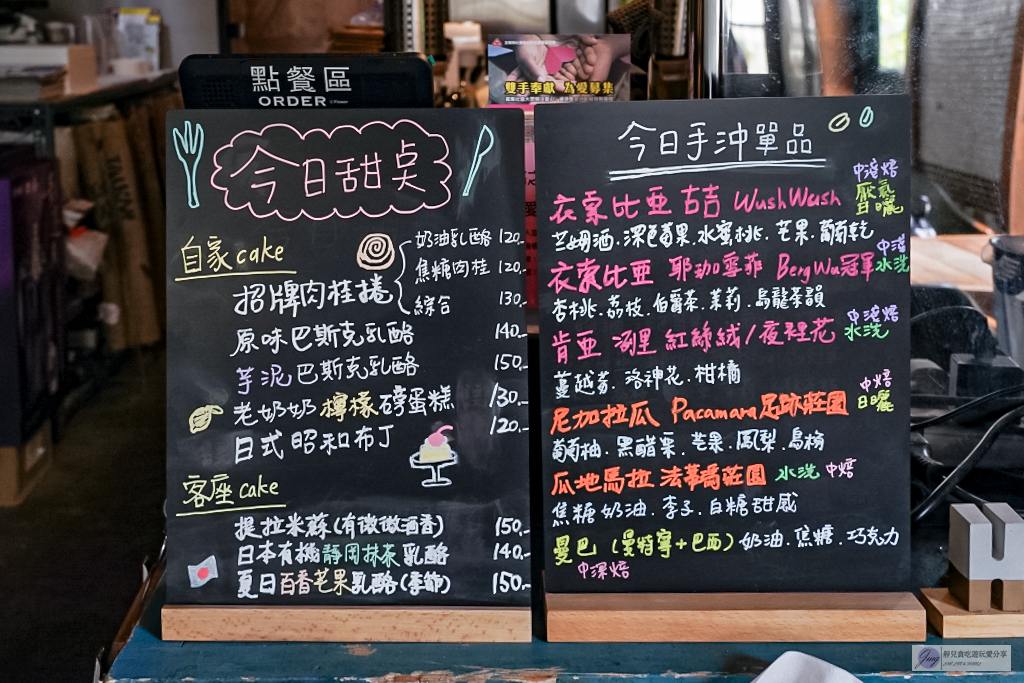 點餐區
ORDER
雙手奉獻 為愛募集
今日甜点
自家cake
招牌肉桂捲
奶油乳酪 120.
焦糖肉桂 120.
綜合 130.
原味巴斯克乳酪 140.
芋泥巴斯克乳酪 150.
老奶奶檸檬磅蛋糕 130.
日式昭和布丁 120.
客座cake
提拉米蘇(有微微酒香) 150.
日本有機靜岡抹茶乳酪 140.
夏日百香芒果乳酪(季節) 150.
今日手沖單品
衣索比亞 古吉 WushWush 中淺焙 厭氧日曬
兰姆酒.深色莓果.水蜜桃.芒果.葡萄乾
衣索比亞 耶加雪菲 BergWu冠軍 中淺 水洗
杏桃.荔枝.伯爵茶.茉莉.烏龍茶韻
肯亞 涮里 紅絲絨/夜裡花 中淺焙 水洗
蔓越莓.洛神花.柑橘
尼加拉瓜 Pacamara足跡莊園 中焙 日曬
葡萄柚.黑醋栗.芒果.鳳梨.烏梅
瓜地馬拉 法蒂瑪莊園 水洗 中焙
焦糖奶油.李子.白糖甜感
曼巴 (曼特寧+巴西) 奶油.焦糖.巧克力
中深焙
Jung
靜兒貪吃遊玩愛分享